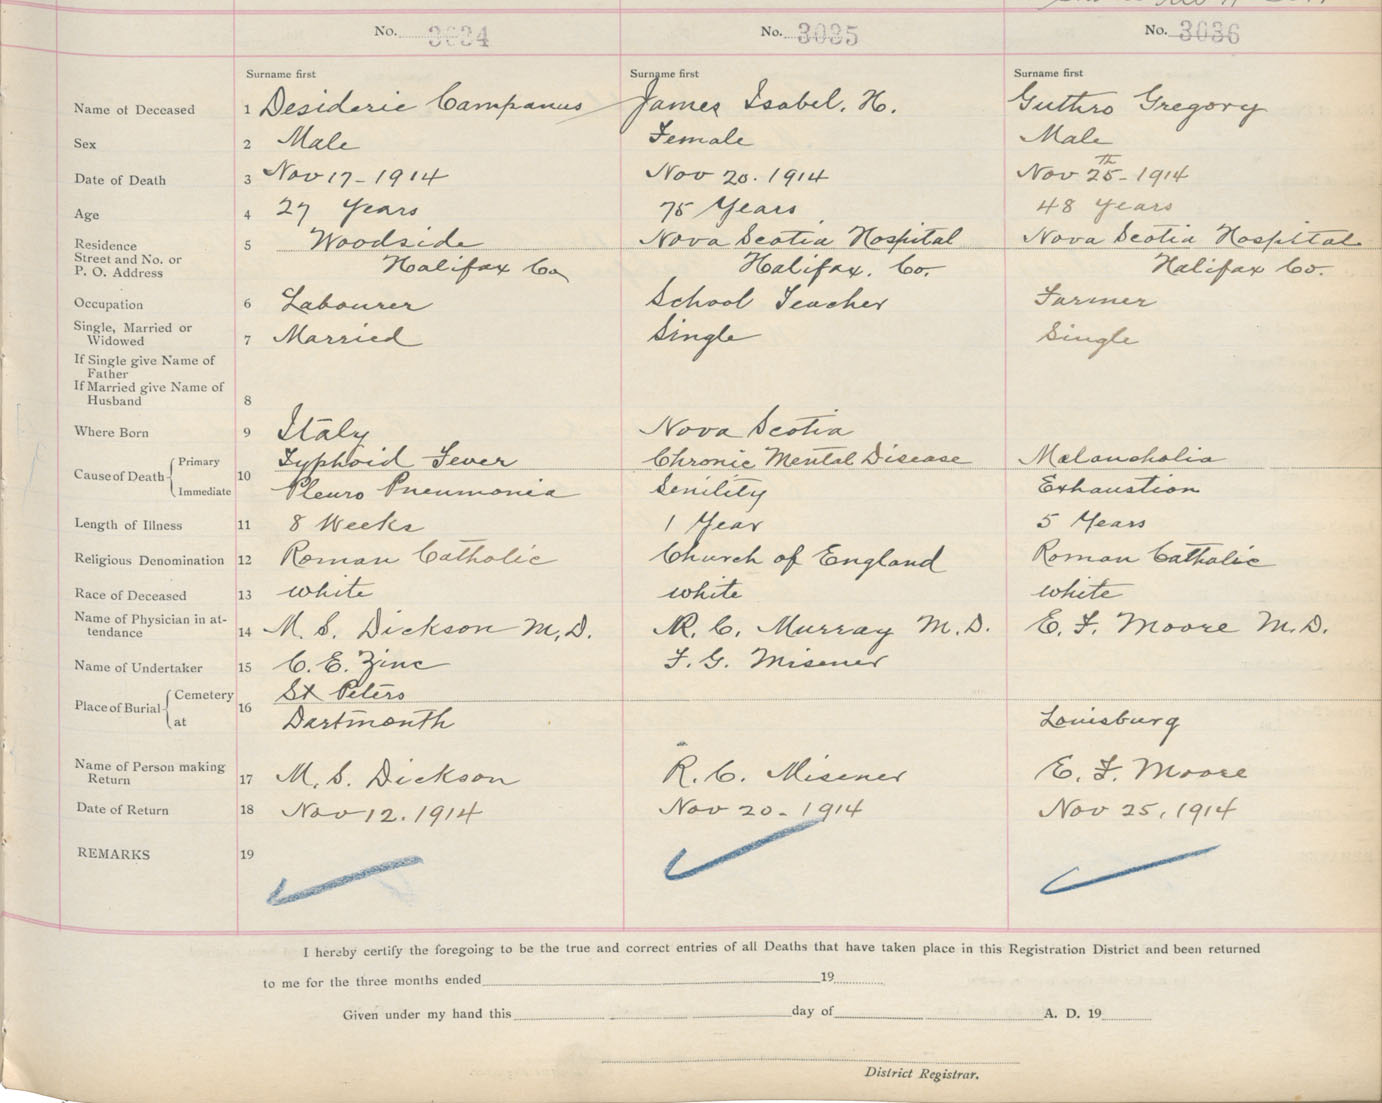 No. 3034 No. 3035 No. 3036
Surname first Surname first Surname first
Name of Deceased 1 Desiderie Campanus James Isabel. H. Guthro Gregory
Sex 2 Male Female Male
Date of Death 3 Nov 17-1914 Nov 20. 1914 Nov 25th - 1914
Age 4 27 Years 75 Years 48 Years
Residence 5 Woodside Nova Scotia Hospital Nova Scotia Hospital
Street and No. or
P. O. Address Halifax Co Halifax. Co. Halifax Co.
Occupation 6 Labourer School Teacher Farmer
Single, Married or
Widowed 7 Married Single Single
If Single give Name of
Father
If Married give Name of
Husband 8
Where Born 9 Italy Nova Scotia
Cause of Death Primary 10 Typhoid Fever Chronic Mental Disease Melancholia
Immediate Pleuro Pneumonia Senility Exhaustion
Length of Illness 11 8 Weeks 1 Year 5 Years
Religious Denomination 12 Roman Catholic Church of England Roman Catholic
Race of Deceased 13 white white white
Name of Physician in at-
tendance 14 M. S. Dickson M.D. R. C. Murray M.D. E. F. Moore M.D.
Name of Undertaker 15 C. E. Zinc F. G. Misener
Place of Burial Cemetery 16 St Peters
at Dartmonth Louisburg
Name of Person making
Return 17 M. S. Dickson R. C. Misener E. F. Moore
Date of Return 18 Nov 12. 1914 Nov 20 - 1914 Nov 25, 1914
REMARKS 19
I hereby certify the foregoing to be the true and correct entries of all Deaths that have taken place in this Registration District and been returned
to me for the three months ended 19
Given under my hand this day of A. D. 19
District Registrar.